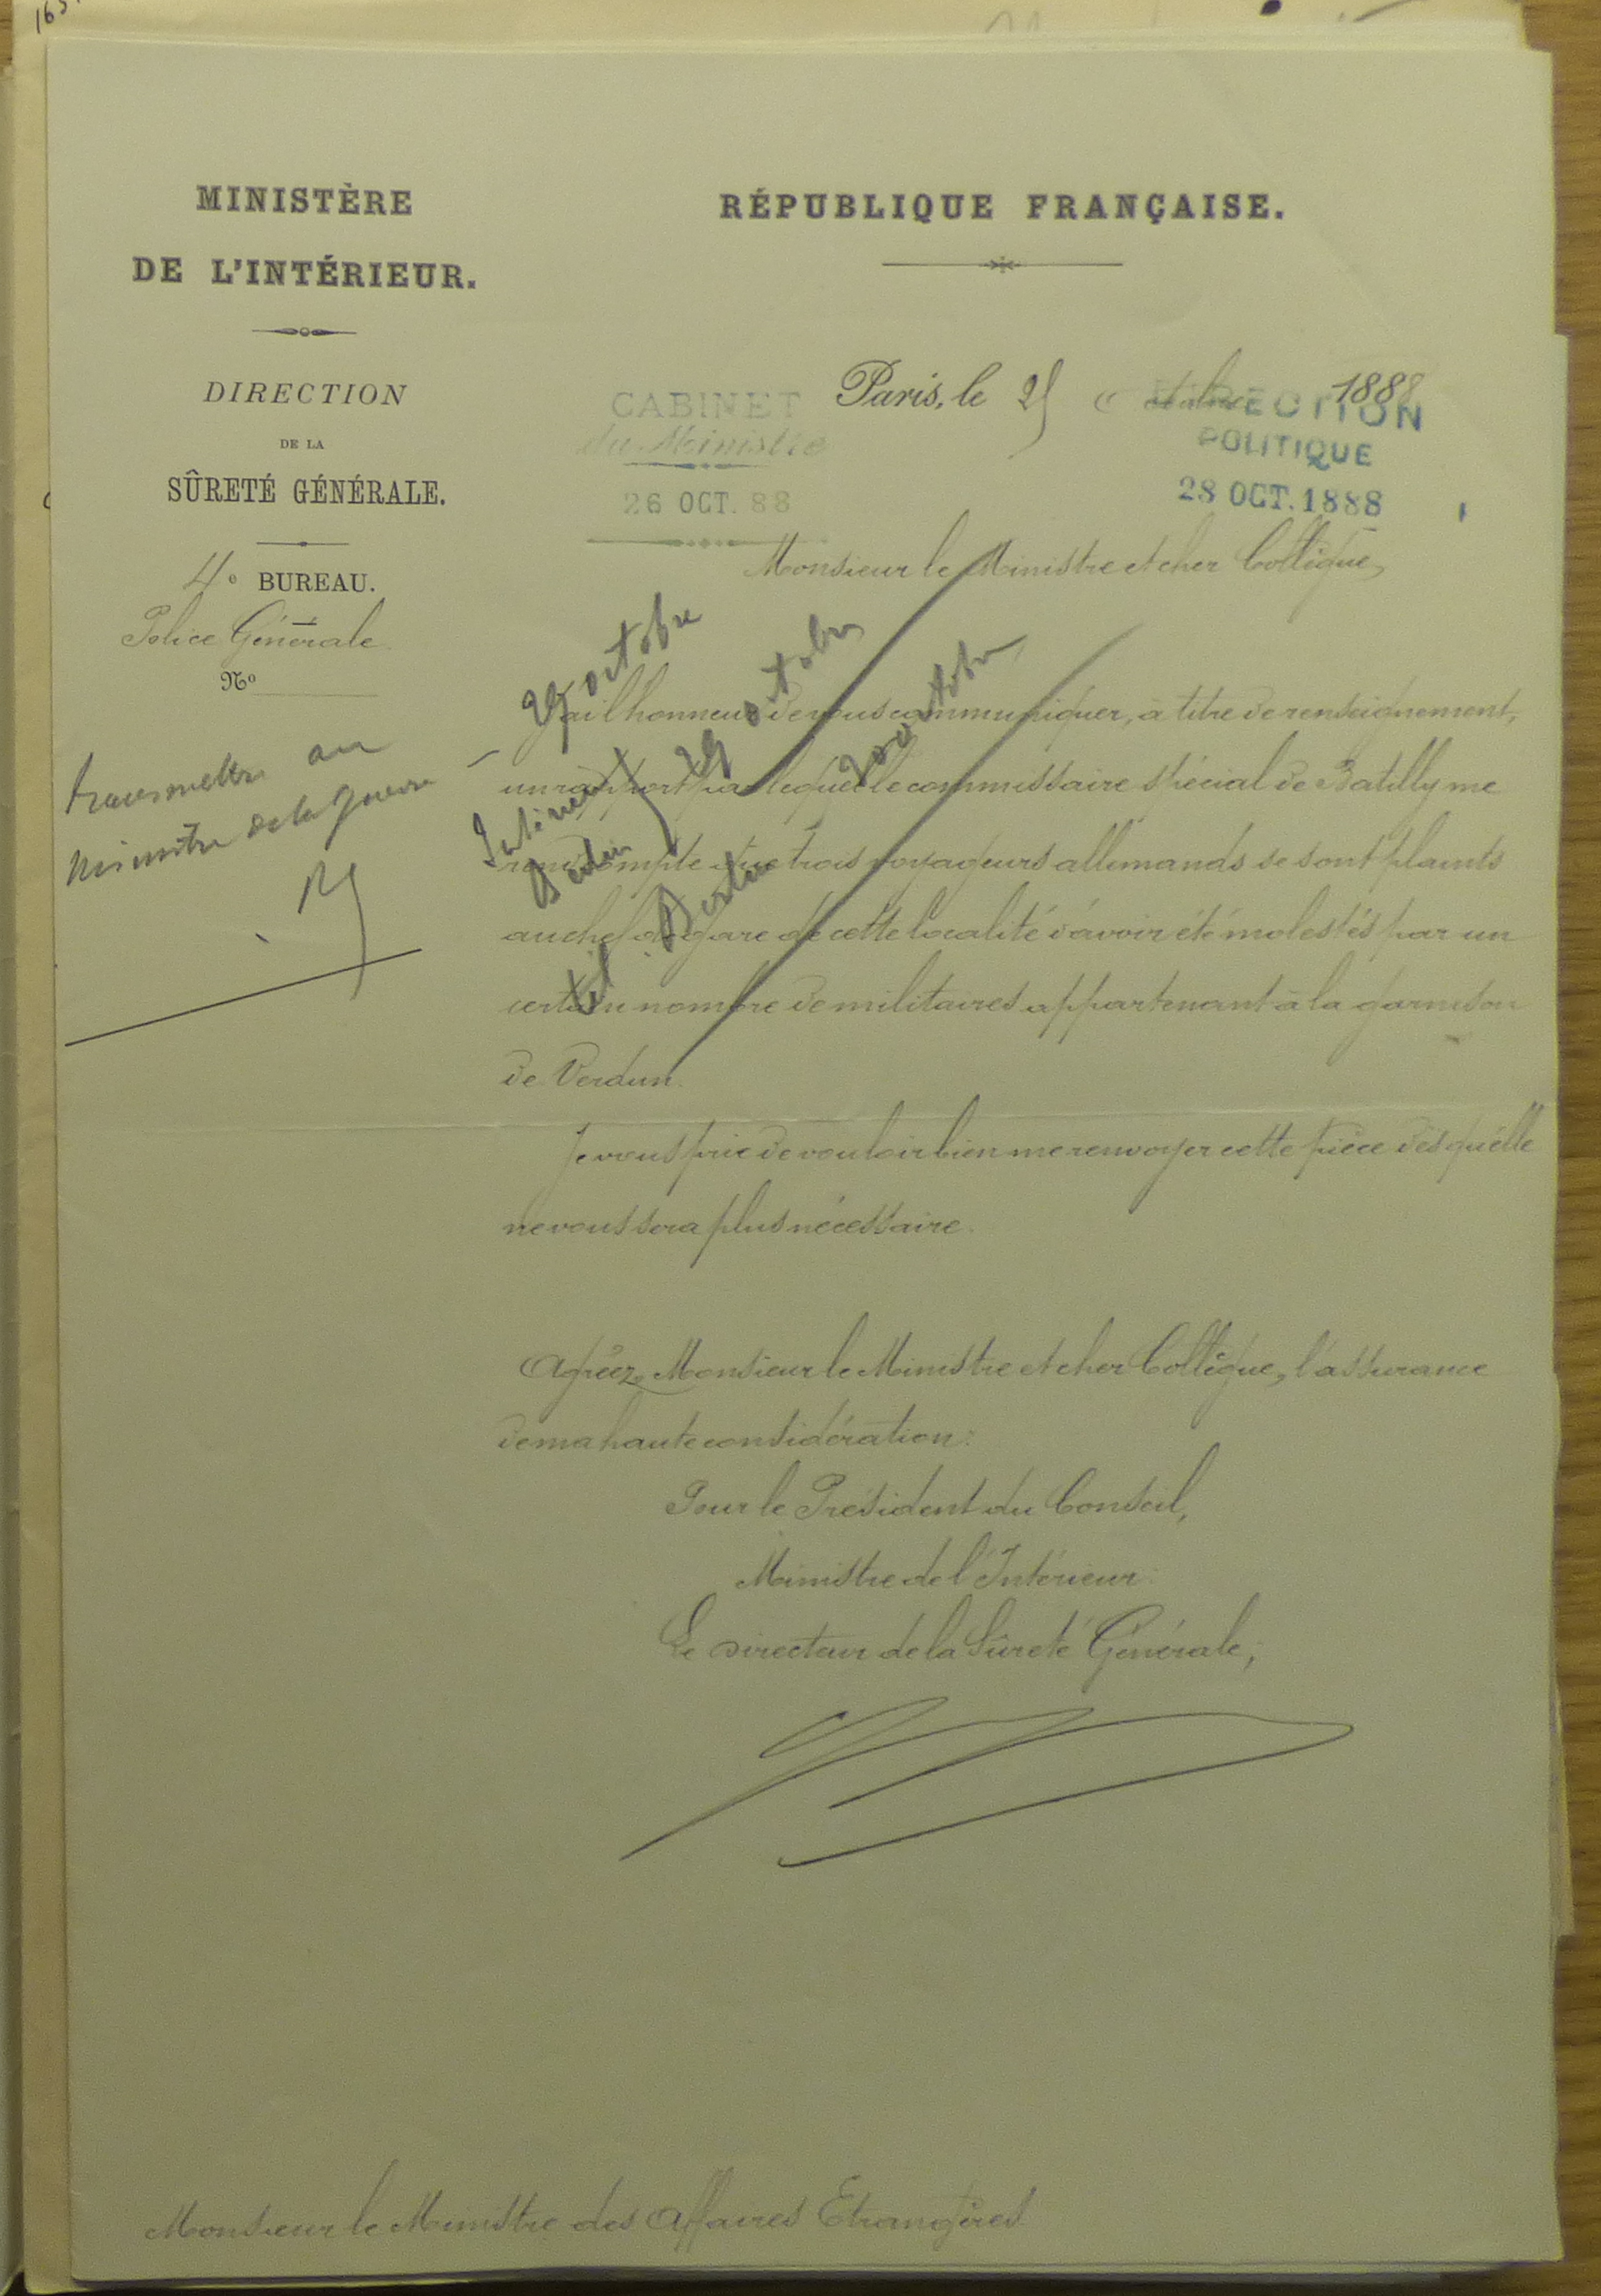 MINISTÈRE
DE L'INTÉRIEUR.
DIRECTION
DE LA
SÛRETÉ GÉNÉRALE.
4e BUREAU.
Police Générale
No
transmettre au
Ministre de la Guerre
RÉPUBLIQUE FRANÇAISE.
Paris, le 25 octobre 1888
CABINET
du Ministre
26 OCT. 88
DIRECTION
POLITIQUE
28 OCT. 1888
Monsieur le Ministre et cher Collègue,
29 octobre
29 octobre
octobre
Intérieur
Berlin
tel. Berlin
J'ai l'honneur de vous communiquer, à titre de renseignement,
un rapport par lequel le commissaire spécial de Batilly me
rend compte que trois voyageurs allemands se sont plaints
au chef de gare de cette localité d'avoir été molestés par un
certain nombre de militaires appartenant à la garnison
de Verdun.
Je vous prie de vouloir bien me renvoyer cette pièce dès qu'elle
ne vous sera plus nécessaire.
Agréez, Monsieur le Ministre et cher Collègue, l'assurance
de ma haute considération.
Pour le Président du Conseil,
Ministre de l'Intérieur:
Le Directeur de la Sûreté Générale,
Monsieur le Ministre des Affaires Etrangères